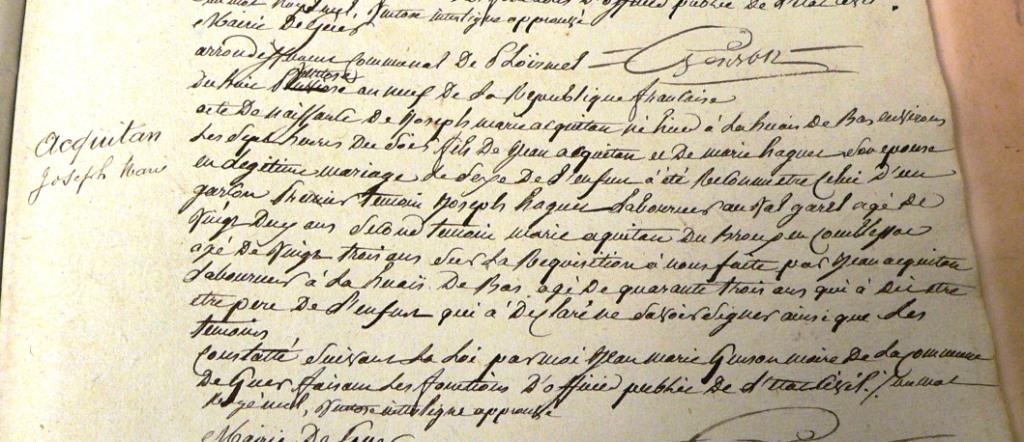 officier public de l'état civil.
nivose interligne approuvé
Mairie De Guer
arrondissement communal De Ploërmel
Du huit nivose an neuf De La Republique francaise
acte De naissance De Joseph marie acquitan né hier à La huais De Bas environ
Les sept heures Du soir fils De Jean acquitan et De marie haguet Son epouse
en Legitime mariage Le Sexe De L'enfant à été Reconnu etre Celui D'un
garson Premier temoin Joseph haguet Laboureur au Val garel agé De
Vingt Deux ans Second temoin marie aquitan Du
agé De Vingt trois ans Sur La Requisition à nous faite par Jean acquitan
Laboureur à La huais De Bas agé De quarante trois ans qui à Dit etre
etre pere De L'enfant qui à Déclaré ne Savoir Signer ainsi que Les
temoins
Constatté Suivant La Loi par moi Jean marie maire De La Commune
De Guer faisant Les fonctions D'officier public De L'Etat civil / un mot
nivose interligne approuvé
Mairie De Guer
acquitan
Joseph Marie